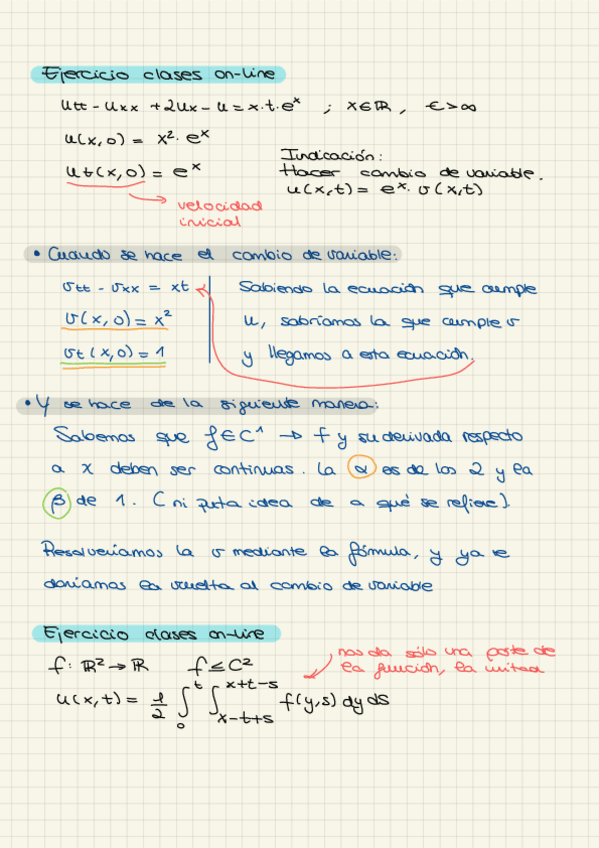 Ejercicio clases on-line
utt - uxx + 2ux - u = x·t·e^x ; x∈ℝ, t>∞
u(x,0) = x²·e^x
ut(x,0) = e^x
Indicación:
Hacer cambio de variable.
u(x,t) = e^x·v(x,t)
velocidad
inicial
• Cuando se hace el cambio de variable:
vtt - vxx = xt
v(x,0) = x²
vt(x,0) = 1
Sabiendo la ecuación que cumple
u, sabríamos la que cumple v
y llegamos a esta ecuación.
• Y se hace de la siguiente manera:
Sabemos que f∈C¹ → f y su derivada respecto
a x deben ser continuas. La α es da los 2 y la
β de 1. (ni puta idea de a qué se refiere)
Resolveríamos la v mediante la fórmula, y ya le
daríamos la vuelta al cambio de variable
Ejercicio clases on-line
f: ℝ² → ℝ f ≤ C²
nos da sólo una parte de
la función, la mitad
u(x,t) = 1/2 ∫₀^t ∫_{x-t+s}^{x+t-s} f(y,s) dy ds